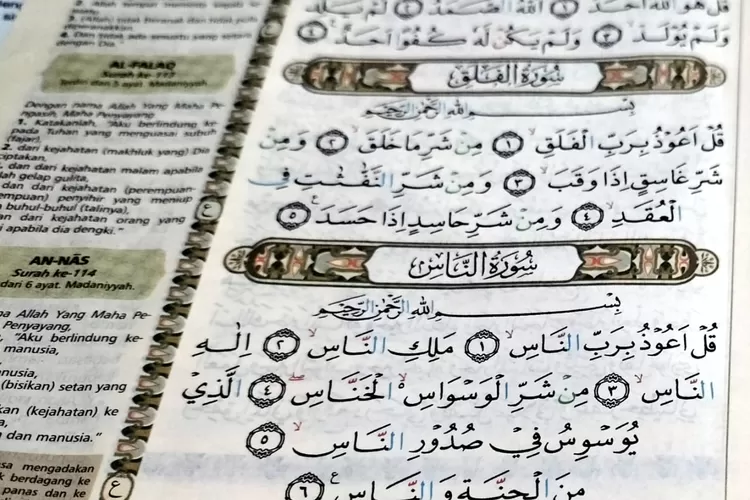 قُلْ هُوَ اللّٰهُ اَحَدٌ ۝١ اَللّٰهُ الصَّمَدُ ۝٢ لَمْ يَلِدْ
وَلَمْ يُوْلَدْ ۝٣ وَلَمْ يَكُنْ لَّهٗ كُفُوًا اَحَدٌ ۝٤
سُوْرَةُ الْفَلَقِ
بِسْمِ اللّٰهِ الرَّحْمٰنِ الرَّحِيْمِ
قُلْ اَعُوْذُ بِرَبِّ الْفَلَقِ ۝١ مِنْ شَرِّ مَا خَلَقَ ۝٢ وَمِنْ
شَرِّ غَاسِقٍ اِذَا وَقَبَ ۝٣ وَمِنْ شَرِّ النَّفّٰثٰتِ فِى
الْعُقَدِ ۝٤ وَمِنْ شَرِّ حَاسِدٍ اِذَا حَسَدَ ۝٥
سُوْرَةُ النَّاسِ
بِسْمِ اللّٰهِ الرَّحْمٰنِ الرَّحِيْمِ
قُلْ اَعُوْذُ بِرَبِّ النَّاسِ ۝١ مَلِكِ النَّاسِ ۝٢ اِلٰهِ
النَّاسِ ۝٣ مِنْ شَرِّ الْوَسْوَاسِ الْخَنَّاسِ ۝٤ الَّذِيْ
يُوَسْوِسُ فِيْ صُدُوْرِ النَّاسِ ۝٥
مِنَ الْجِنَّةِ وَالنَّاسِ ۝٦
4. Dan tidak ada sesuatu yang setara
dengan Dia."
AL-FALAQ
Surah ke-113
Terdiri dari 5 ayat. Madaniyyah.
Dengan nama Allah Yang Maha Pe-
ngasih, Maha Penyayang
1. Katakanlah, "Aku berlindung ke-
pada Tuhan yang menguasai subuh
(fajar),
2. dari kejahatan (makhluk yang) Dia
ciptakan,
dan dari kejahatan malam apabila
lah gelap gulita,
dan dari kejahatan (perempuan-
empuan) penyihir yang meniup
buhul-buhul (talinya),
an dari kejahatan orang yang
i apabila dia dengki."
ع
AN-NÂS
Surah ke-114
dari 6 ayat. Madaniyyah.
ma Allah Yang Maha Pe-
Penyayang,
"Aku berlindung ke-
manusia,
nusia,
(bisikan) setan yang
kan (kejahatan) ke
dan manusia."
ع
sa mengadakan
berdagang ke
panas dan ke